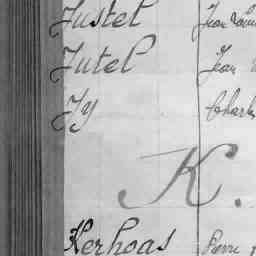 Justel Jean Louis
Jutel Jean
Jy Charles
K.
Kerhoas Pierre